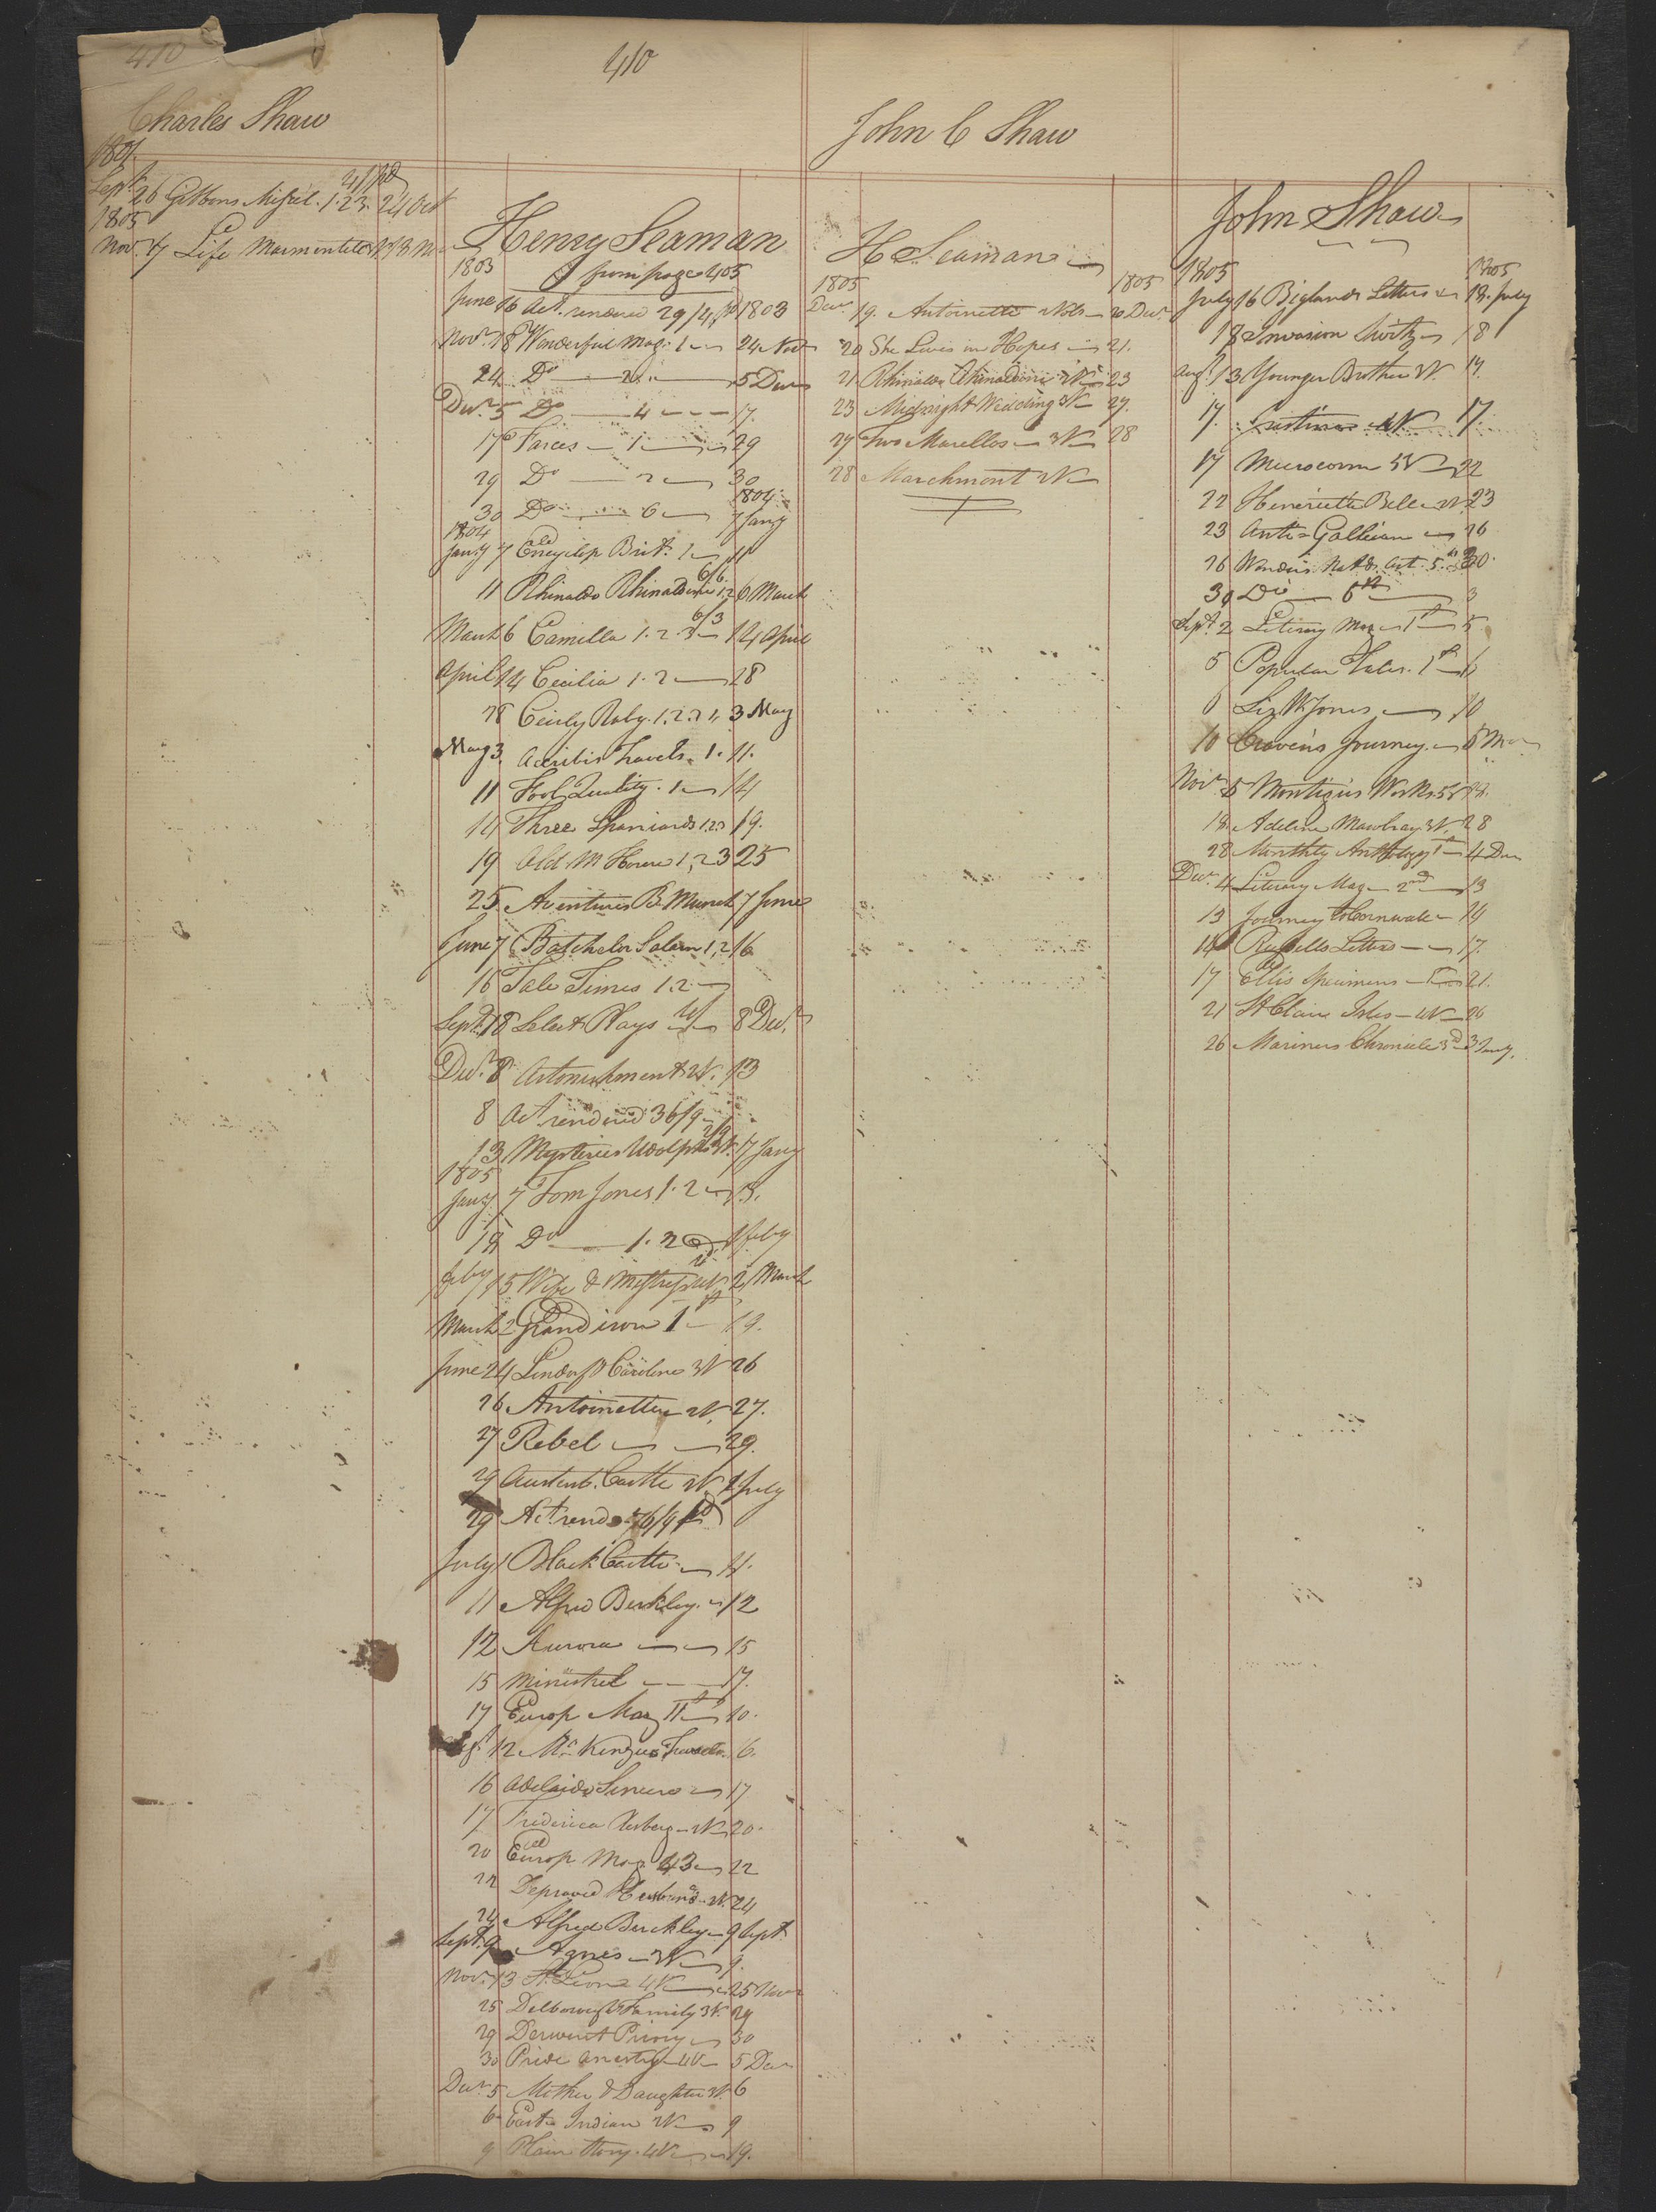 410
410
Charles Shaw
1804
4/ pd
Sept 26 Gibbons Misfel. 1.23. 24 Oct
1805
Nov. 7 Life Marmontel 2 V 13 Nov
Henry Seaman
from page 405
1803
June 16 Act. rendered 29/4 pd 1803
Novr. 18 Wonderful Mag: 1 24 Novr
24 Do 2 5 Decr
Decr. 5 Do 4 17.
17 Farces 1 29
29 Do 2 30
1804
30 Do 6 7 Jany
1804
Jany 7 Encyclop Brit. 1 11
6/6
11 Rhinaldo Rhinaldini 1.2 6 March
6/3
March 6 Camilla 1.2.3 14 April
April 14 Cecilia 1.2 28
28 Cicily Raby. 1.2.3 4 3 May
May 3. Acerbis Travels. 1. 11.
11 Fool Quality. 1 14
14 Three Spaniards 1.2.3 19.
19 Old M House 1,2 3 25
25 Aventures B. Munch 7 June
June 7 Batchelor Salem 1,2 16
16 Tale Times 1.2
Sept. 18 Select Plays 8 Decr.
Decr. 8 Astonishment 2V. 13
8 Act rendered 36/9
2/9
13 Mysteries Udolpho 3V. 7 Jany
1805
Jany 7 Tom Jones 1.2 18.
18 Do 1.2 1 feby
feby 15 Wife & Mistress 2V 2 March
March 2 Grandison 1st 19.
June 24 Lindorf & Caroline 3V 26
26 Antoinette 2V. 27.
27 Rebel 29.
29 Austenb. Castle 2V. 1 July
29 Act. rend. 76/9 pd
July 1 Black Castle 11.
11 Alfred Berkley. 12
12 Aurora 15
15 Minstrel 17.
17 Europ Mag 11th 10.
Augt 12 Mc. Kenzies Travels. 16.
16 Adelaide Sincere 17
17 Frederica Risberg 2V 20.
20 Europ Mag 43 22
22 Depraved Husband 2V. 24
24 Alfred Berkley 9 Sept
Sept. 9 Agnes 3V
Novr. 13 St. Leon 4V 25 Novr
25 Delborough Family 3V. 29
29 Derwent Priory 30
30 Pride Ancestry 4V 5 Decr
Decr. 5 Mother & Daughter 3V. 6
6 East Indian 2V 9
9 Plain Story. 4V. 19.
John C Shaw
H Seaman
1805 1805
Decr. 19. Antoinette 2 Vols 20 Decr
20 She Lives in Hopes 21.
21 Rhinaldo Rhinaldini 2V 23
23 Midnight Wedding 2V 27.
27 Two Marellos 3V 28
28 Marchmont 2V
John Shaw
1805 1805
July 16 Biglands Letters 18. July
18 Invasion 18
Augt. 13 Younger Brother 2V. 17.
17. 4V 17.
17 Microcosm 5V 22
22 Henrietta Bell 2V. 23
23 Anti Gallican 26
26 Wonders Nat & Art 5th 30.
30 Do 6th 3
Sept. 2 Literary Mag 1st 5
5 Popular Tales. 1st 6
6 Sir W Jones 10
10 Cravens Journey. 5 Novr
Novr. 5 Montagus Works 5V 18.
18. Adeline Mowbray 3V. 28
28 Monthly Anthology 1st 4 Decr
Decr. 4 Literary Mag 2nd 13
13 Journey to Cornwall 14
14 Russells Letters 17.
17 Ellis Specimens 1st 21.
21 St Clair Isles 4V 26
26 Mariners Chronicle 3d 3 Jany.